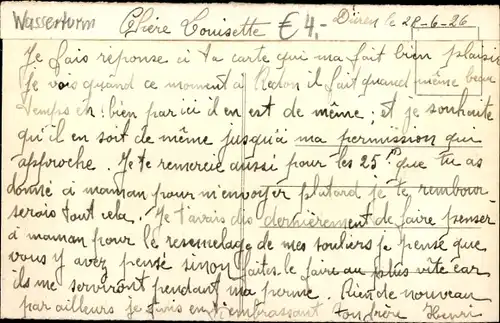 Wasserturm Chère Louisette € 4,- Düren le 28-6-26
Je fais réponse à ta carte qui ma fait bien plaisir
Je vois quand ce moment à Redon il fait quand même beau
temps eh! bien par ici il en est de même; et je souhaite
qu'il en soit de même jusqu'à ma permission qui
approche. Je te remercie aussi pour les 25f que tu as
donné à maman pour m'envoyer plutard je te rembour
serais tout cela. Je t'avais dis dernièrement de faire penser
à maman pour le resemelage de mes souliers je pense que
vous y avez pensé sinon faites le faire au plus vite car
ils me serviront pendant ma perme. Rien de nouveau
par ailleurs je finis en t'embrassant ton frère Henri